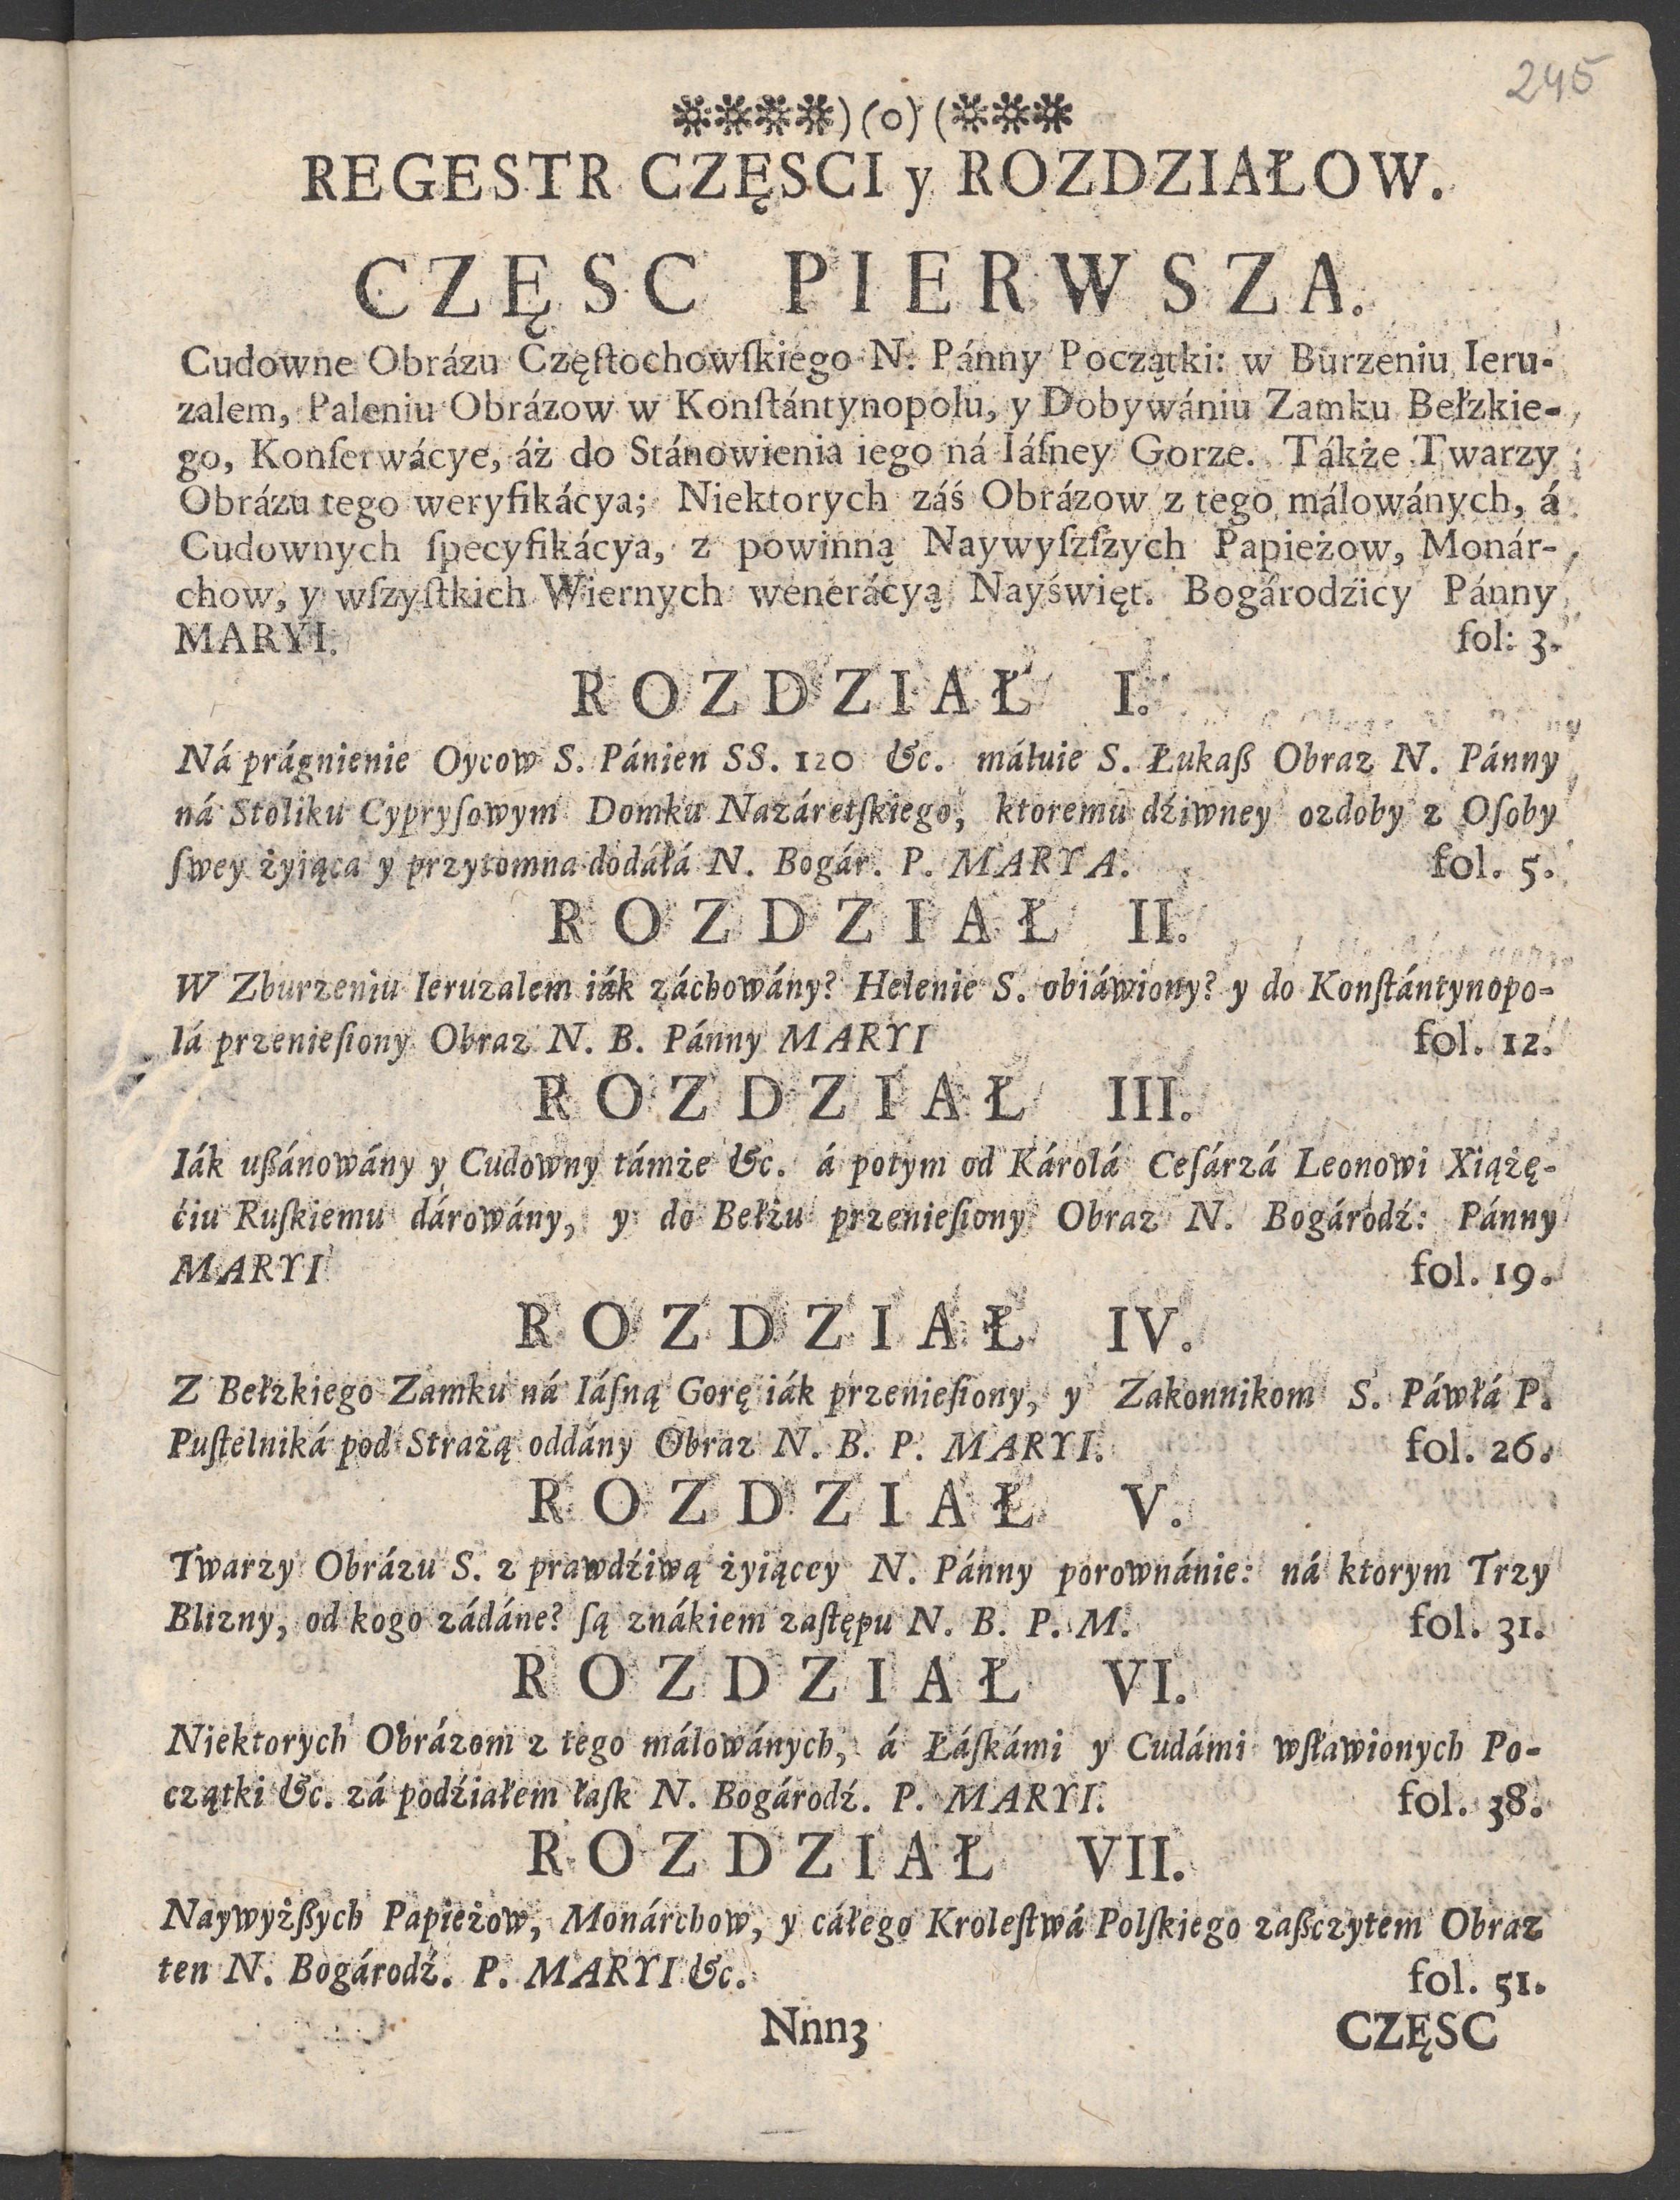 245
✼✼✼✼)(o)(✼✼✼
REGESTR CZĘSCI y ROZDZIAŁOW.
CZĘSC PIERWSZA.
Cudowne Obrázu Częſtochowſkiego N. Pánny Początki: w Burzeniu Ieru-
zalem, Paleniu Obrázow w Konſtántynopolu, y Dobywániu Zamku Bełzkie-
go, Konſerwácye, áż do Stánowienia iego ná Iáſney Gorze. Tákże Twarzy
Obrázu tego weryfikácya; Niektorych záś Obrázow z tego málowánych, á
Cudownych ſpecyfikácya, z powinną Naywyſzſzych Papieżow, Monár-
chow, y wſzyſtkich Wiernych wenerácyą Nayświęt. Bogárodźicy Pánny
MARYI. fol: 3.
ROZDZIAŁ I.
Ná prágnienie Oycow S. Pánien SS. 120 &c. máluie S. Łukaß Obraz N. Pánny
ná Stoliku Cypryſowym Domku Nazáretſkiego, ktoremu dźiwney ozdoby z Oſoby
ſwey żyiąca y przytomna dodáłá N. Bogár. P. MARYA. fol. 5.
ROZDZIAŁ II.
W Zburzeniu Ieruzalem iák záchowány? Helenie S. obiáwiony? y do Konſtántynopo-
lá przenieſiony Obraz N. B. Pánny MARYI fol. 12.
ROZDZIAŁ III.
Iák ußánowány y Cudowny támże &c. á potym od Károlá Ceſárzá Leonowi Xiążę-
ćiu Ruſkiemu dárowány, y do Bełżu przenieſiony Obraz N. Bogárodź: Pánny
MARYI fol. 19.
ROZDZIAŁ IV.
Z Bełzkiego Zamku ná Iáſną Gorę iák przenieſiony, y Zakonnikom S. Páwłá P.
Puſtelniká pod Strażą oddány Obraz N. B. P. MARYI. fol. 26.
ROZDZIAŁ V.
Twarzy Obrázu S. z prawdźiwą żyiącey N. Pánny porownánie: ná ktorym Trzy
Blizny, od kogo zádáne? ſą znákiem zaſtępu N. B. P. M. fol. 31.
ROZDZIAŁ VI.
Niektorych Obrázom z tego málowánych, á Łáſkámi y Cudámi wſławionych Po-
czątki &c. zá podźiałem łaſk N. Bogárodź. P. MARYI. fol. 38.
ROZDZIAŁ VII.
Naywyżßych Papieżow, Monárchow, y cáłego Kroleſtwá Polſkiego zaßczytem Obraz
ten N. Bogárodź. P. MARYI &c. fol. 51.
Nnn3 CZĘSC